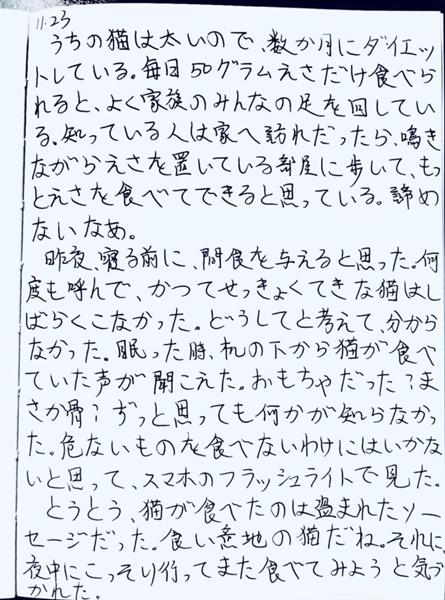 11.23
うちの猫は太いので、数か月にダイエッ
トしている。毎日50グラムえさだけ食べら
れると、よく家族のみんなの足を回してい
る。知っている人は家へ訪れだったら、鳴き
ながらえさを置いている部屋に歩いて、もっ
とえさを食べてできると思っている。諦め
ないなあ。
昨夜、寝る前に、間食を与えると思った。何
度も呼んで、かつてせっきょくてきな猫はし
ばらくこなかった。どうしてと考えて、分から
なかった。眠った時、机の下から猫が食べ
ていた声が聞こえた。おもちゃだった？ま
さか骨？ずっと思っても何かが知らなかっ
た。危ないものを食べないわけにはいかな
いと思って、スマホのフラッシュライトで見た。
とうとう、猫が食べたのは盗まれたソー
セージだった。食い意地の猫だね。それに、
夜中にこっそり行ってまた食べてみようと気づ
かれた。